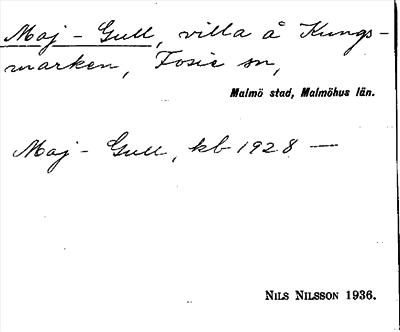 Maj-Gull, villa å Kungs-
marken, Fosie sn,
Malmö stad, Malmöhus län.
Maj-Gull, kb 1928 —
NILS NILSSON 1936.